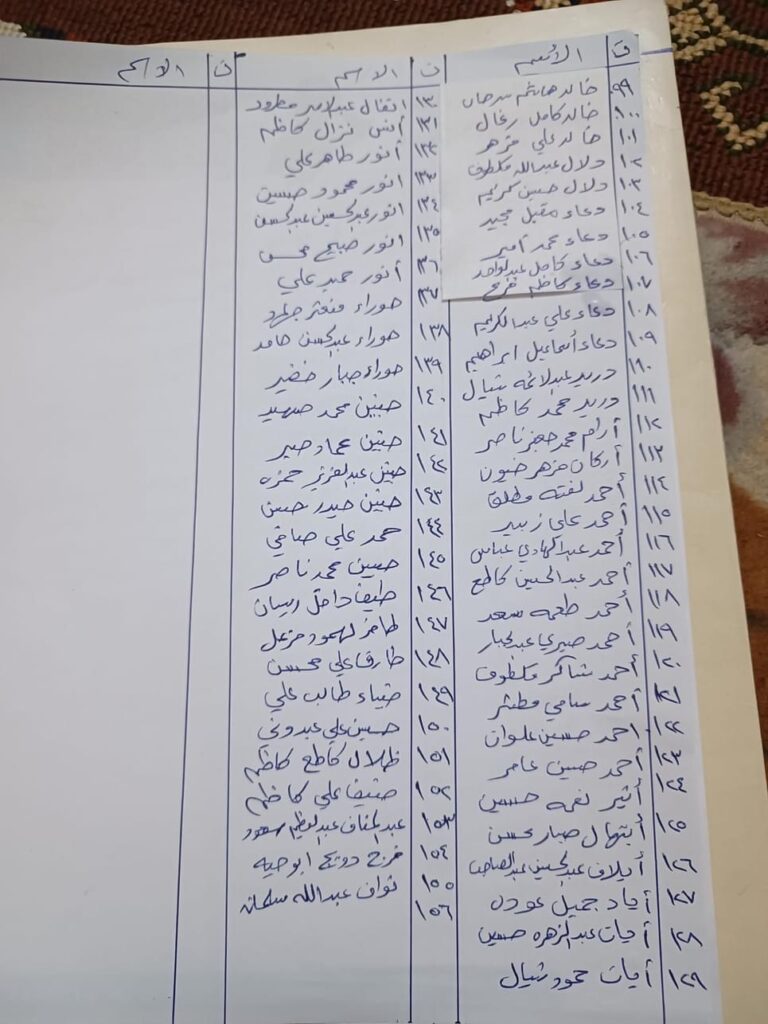 ت الأسم
٩٩ خالد هاشم سرحان
١٠٠ خالد كامل زغال
١٠١ خالد علي مزهر
١٠٢ دلال عبدالله مكطوف
١٠٣ دلال حسين كريم
١٠٤ دعاء مقبل مجيد
١٠٥ دعاء محمد أمير
١٠٦ دعاء كامل عبدالواحد
١٠٧ دعاء كاظم فرج
١٠٨ دعاء علي عبدالكريم
١٠٩ دعاء أسماعيل ابراهيم
١١٠ دريد عبدالائمه شيال
١١١ دريد محمد كاظم
١١٢ أرام محمدجعفر ناصر
١١٣ أركان مزهر ضيون
١١٤ أحمد لفته مطلق
١١٥ أحمد علي زبير
١١٦ أحمد عبدالهادي عباس
١١٧ أحمد عبدالحسين كاطع
١١٨ أحمد طعمه سعد
١١٩ أحمد صبري عبدالجبار
١٢٠ أحمد شاكر مكطوف
١٢١ أحمد سامي مطشر
١٢٢ احمد حسين علوان
١٢٣ أحمد حسين عامر
١٢٤ أثير نعمه حسين
١٢٥ أبتهال صبار محسن
١٢٦ أيلاف عبدالحسين عبدالصاحب
١٢٧ أياد جميل عوده
١٢٨ أيات عبدالزهره حسين
١٢٩ أيات حمود شيال
ت الاسم
١٣٠ انفال عبدالامير مطرود
١٣١ أنس نزال كاظم
١٣٢ أنور طاهر علي
١٣٣ انور محمود حسين
١٣٤ انور عبدالحسين عبدالحسن
١٣٥ انور صبيح محسن
١٣٦ أنور حميد علي
١٣٧ حوراء منعثر
١٣٨ حوراء عبدالحسن حامد
١٣٩ حوراء جبار خضير
١٤٠ حنين محمد
١٤١ حنين عماد جبر
١٤٢ حنين عبدالعزيز حمزه
١٤٣ حنين حيدر حسن
١٤٤ حمد علي صافي
١٤٥ حسين محمد ناصر
١٤٦ طيف داخل رسان
١٤٧ طامر لهمود مزعل
١٤٨ طارق علي محسن
١٤٩ ضياء طالب علي
١٥٠ حسين علي عبدوني
١٥١ ظلال كاطع كاظم
١٥٢ ضيف علي كاظم
١٥٣ عبدالعظيم سعود
١٥٤ فرج دويج ابوحيه
١٥٥ نواف عبدالله سلمان
١٥٦
ت الاسم